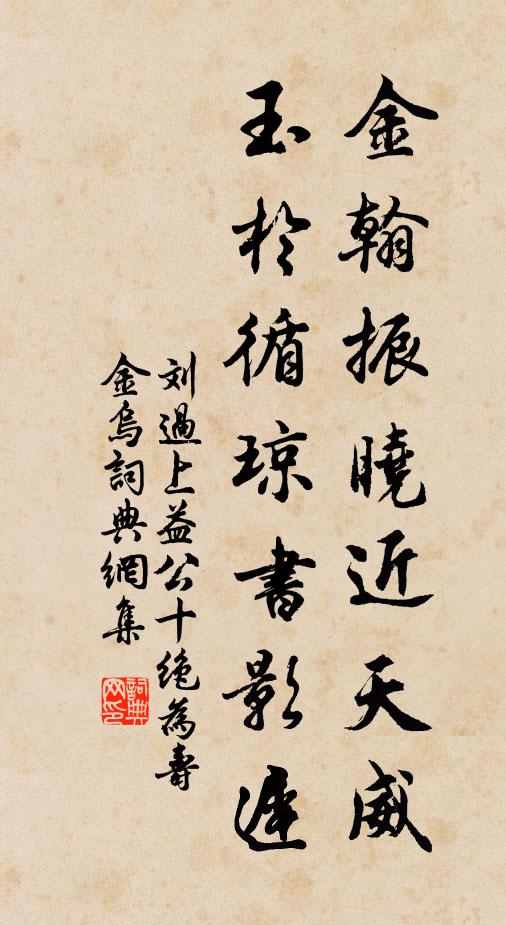 金翰振曉近天威
玉於循琼書影遲
刘過上益公十絕為壽
金烏詞典網集
詞典网印